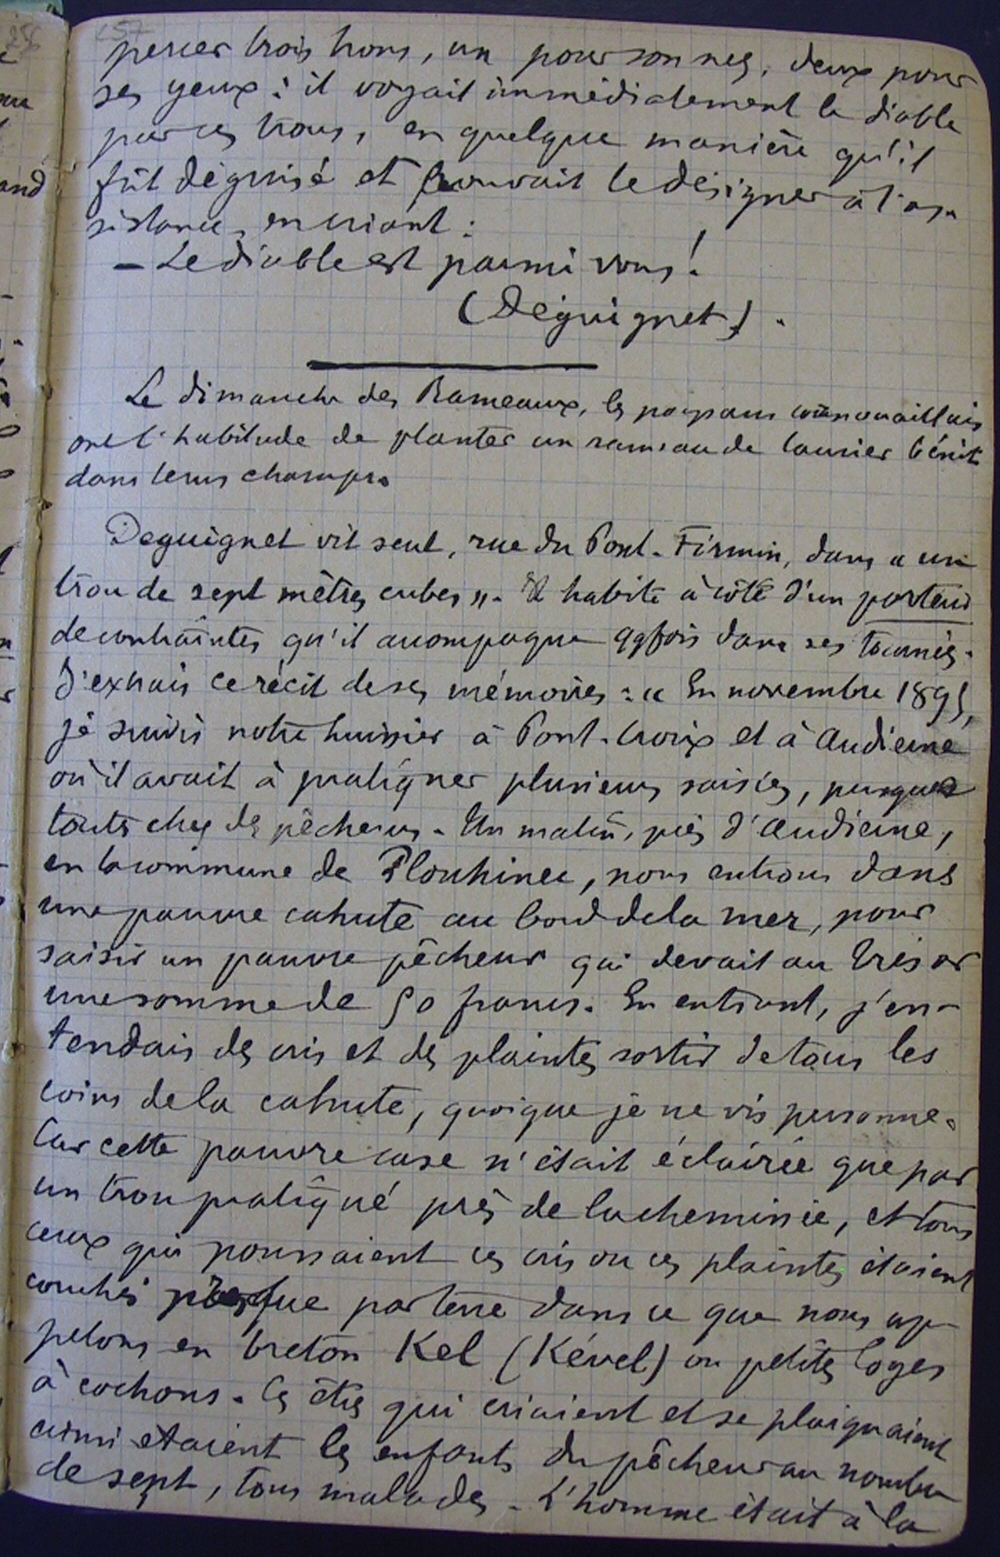 percer trois trous, un pour son nez, deux pour
ses yeux : il voyait immédiatement le diable
par ces trous, en quelque manière qu'il
fût déguisé et pouvait le désigner à l'as-
sistance, en criant :
– Le diable est parmi vous !
(Déguignet).
Le dimanche des Rameaux, les paysans cornouaillais
ont l'habitude de planter un rameau de laurier bénit
dans leurs champs.
Deguignet vit seul, rue du Pont-Firmin, dans « un
trou de sept mètres cubes ». Il habite à côté d'un porteur
de contraintes qu'il accompagne qqfois dans ses tournées.
J'extrais ce récit de ses mémoires : « En novembre 1895,
je suivis notre huissier à Pont-Croix et à Audierne
où il avait à pratiquer plusieurs saisies, presque
toutes chez des pêcheurs. Un matin, près d'Audierne,
en la commune de Plouhinec, nous entrons dans
une pauvre cahute au bord de la mer, pour
saisir un pauvre pêcheur qui devait au Trésor
une somme de 50 francs. En entrant, j'en-
tendais des cris et des plaintes sortir de tous les
coins de la cahute, quoique je ne vis personne.
Car cette pauvre case n'était éclairée que par
un trou pratiqué près de la cheminée, et tous
ceux qui poussaient ces cris ou ces plaintes étaient
couchés presque par terre dans ce que nous ap-
pelons en breton Kel (Kével) ou petites loges
à cochons. Ces êtres qui criaient et se plaignaient
ainsi étaient les enfants du pêcheur au nombre
de sept, tous malades. L'homme était à la